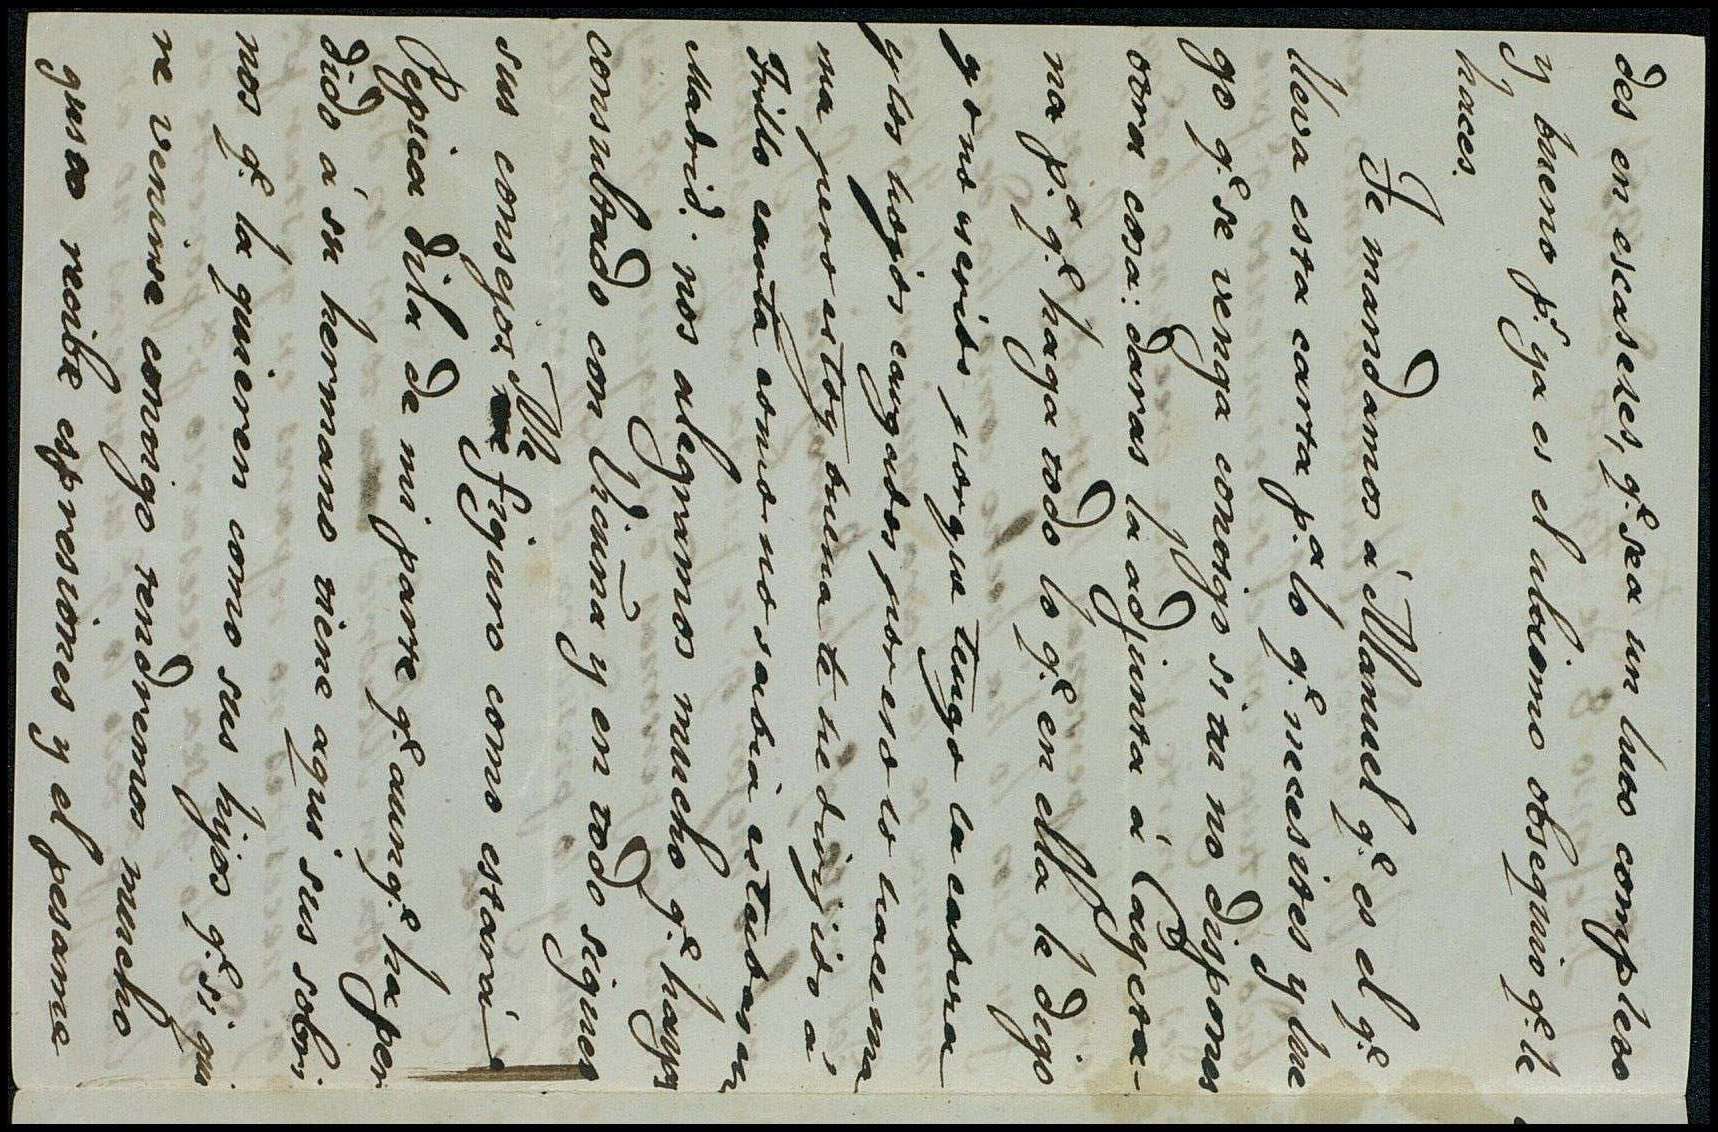 des en escaseses, q.e sea un luto completo
y bueno p.s ya es el ultimo obsequio q.e le
haces.
Te mandamos á Manuel q.e es el q.e
lleva esta carta p.a lo q.e necesites y lue
go q.e se venga conmigo si tu no dispones
otra cosa: daras la adjunta á Cayeta-
na p.a q.e haga todo lo q.e en ella le digo
yo no escribo porque tengo la cabeza
y los hojos cargados por eso lo hace ma
ma pero estoy buena te he dirijido á
Trillo carta como no sabia estabas en
Madrid. nos alegramos mucho q.e hayas
consultado con Vicuña y en todo sigues
sus consejos Me figuro como estará
Pepica dila de mi parte q.e aunq.e ha per
dido á su hermano tiene aqui sus sobri
nos q.e la quieren como sus hijos q.e si quie
re venirse conmigo tendremos mucho
gusto recibe espresiones y el pesame